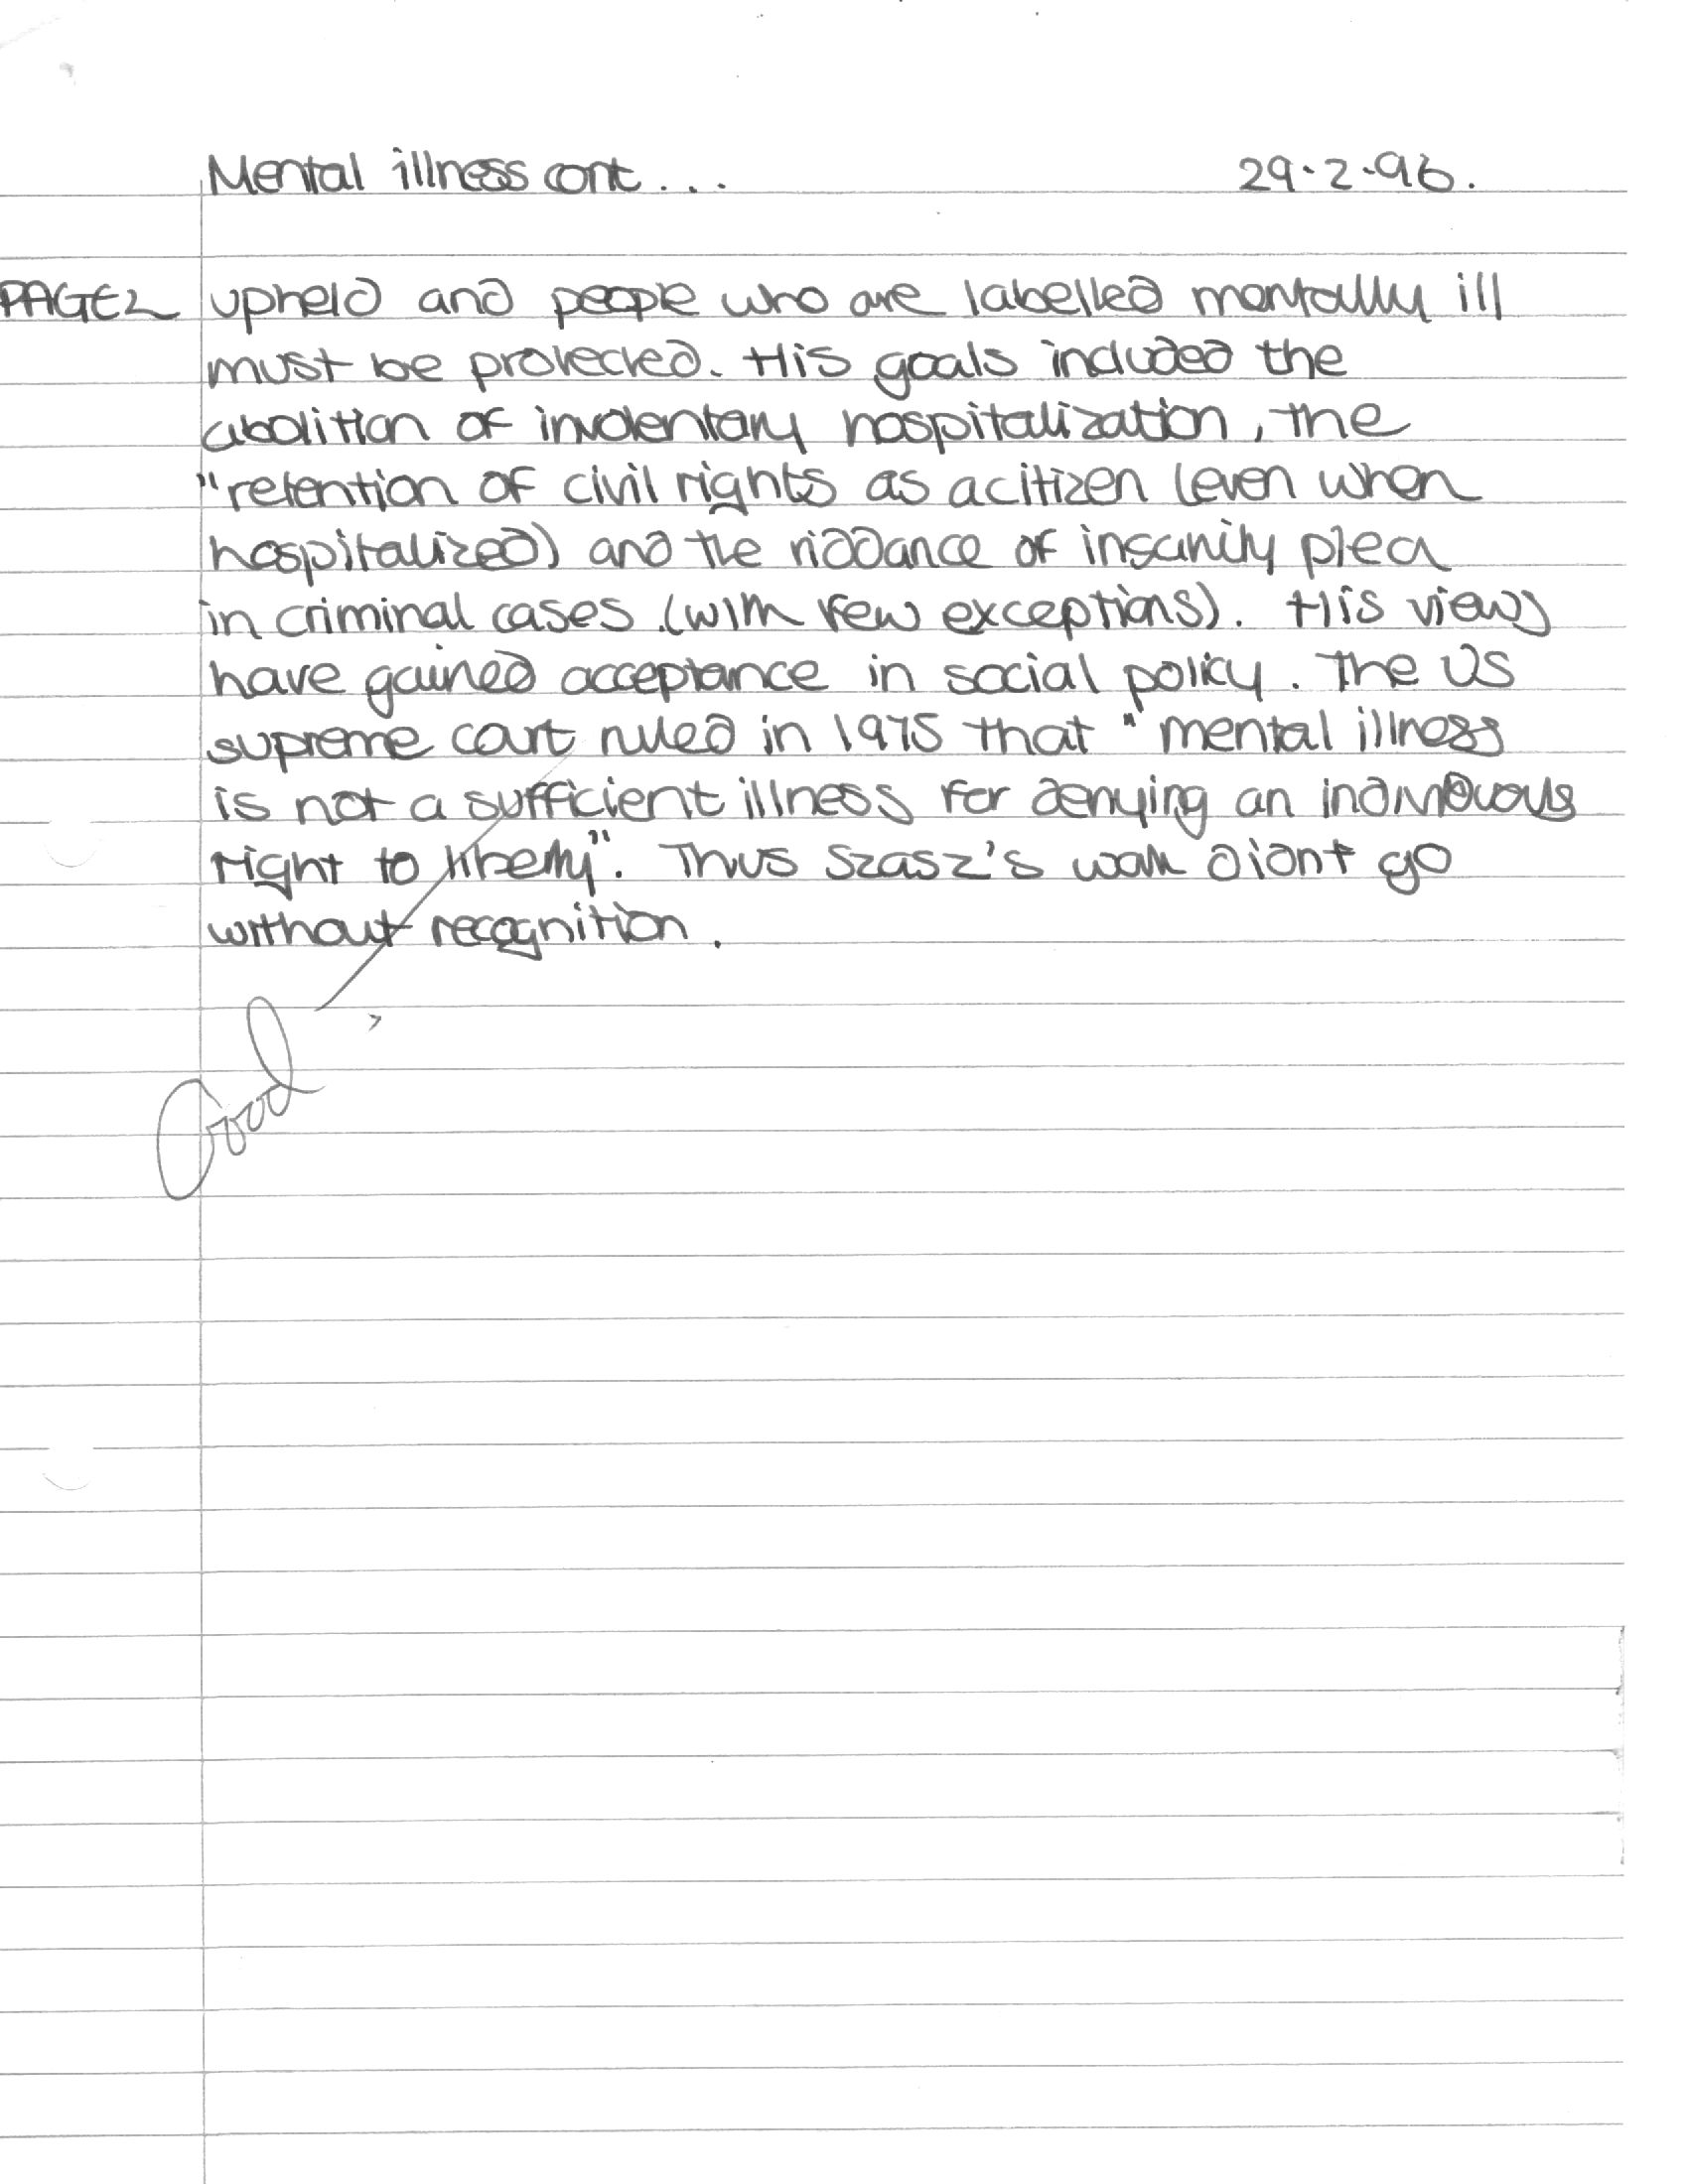 Mental illness cont... 29.2.96.
PAGE 2 upheld and people who are labelled mentally ill
must be protected. His goals included the
abolition of involentary hospitalization, the
"retention of civil rights as a citizen (even when
hospitalized) and the riddance of insanity plea
in criminal cases. (with few exceptions). His views
have gained acceptance in social policy. The US
supreme court ruled in 1975 that "mental illness
is not a sufficient illness for denying an individuals
right to liberty". Thus Szasz's work didnt go
without recognition.
Good